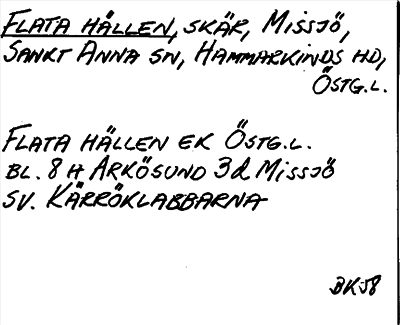 FLATA HÄLLEN, SKÄR, MISSJÖ,
SANKT ANNA SN, HAMMARKINDS HD,
ÖSTG.L.
FLATA HÄLLEN EK ÖSTG.L.
BL. 8 H ARKÖSUND 3d MISSJÖ
SV. KÄRRÖKLABBARNA
BKJ8